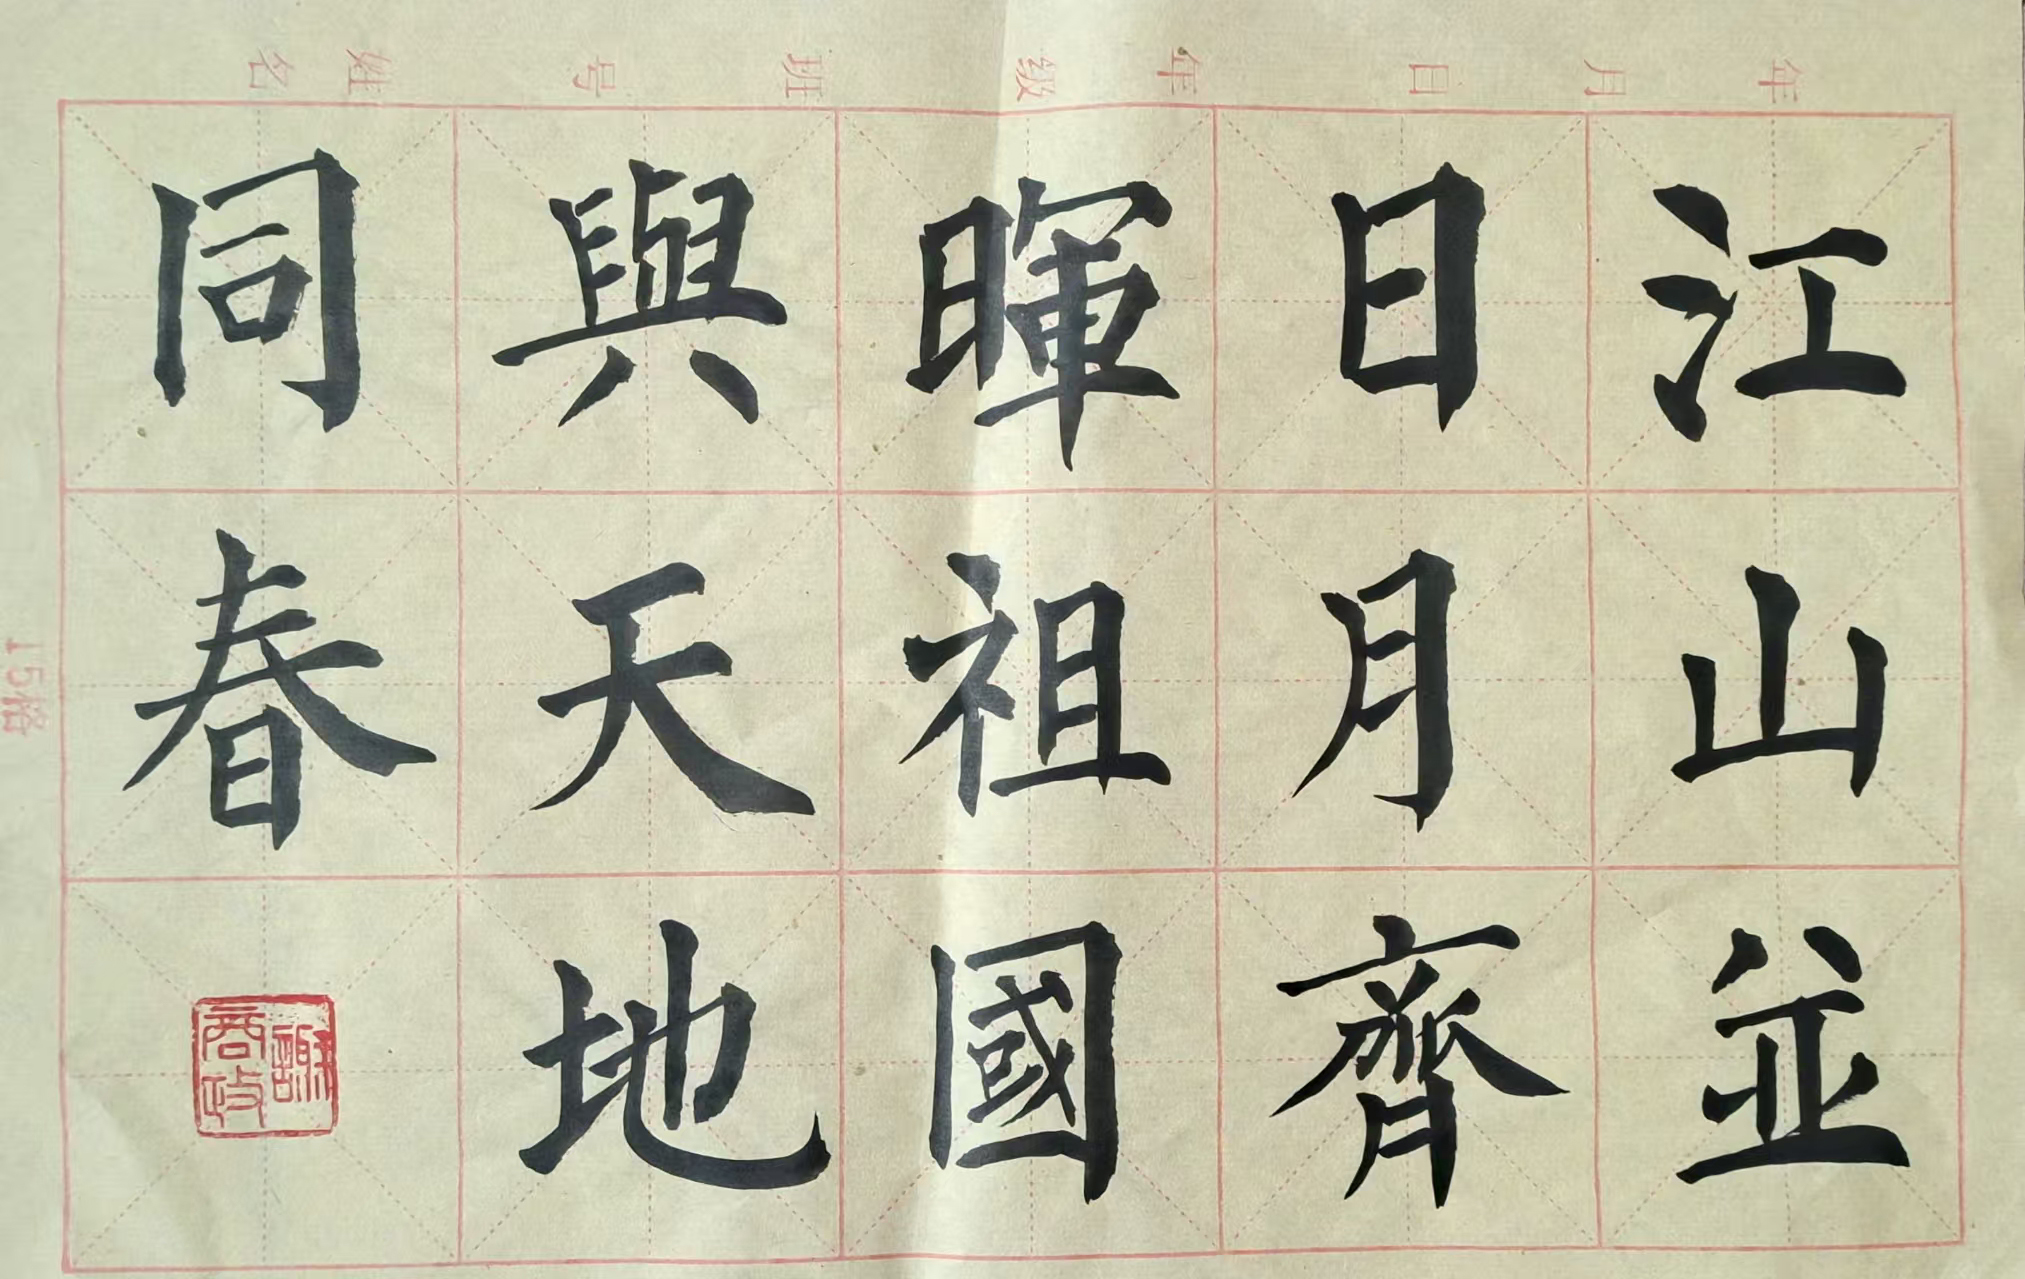 江山並
日月齊
暉祖國
與天地
同春
謝商政
年 月 日 年 级 班 号 姓名
15格